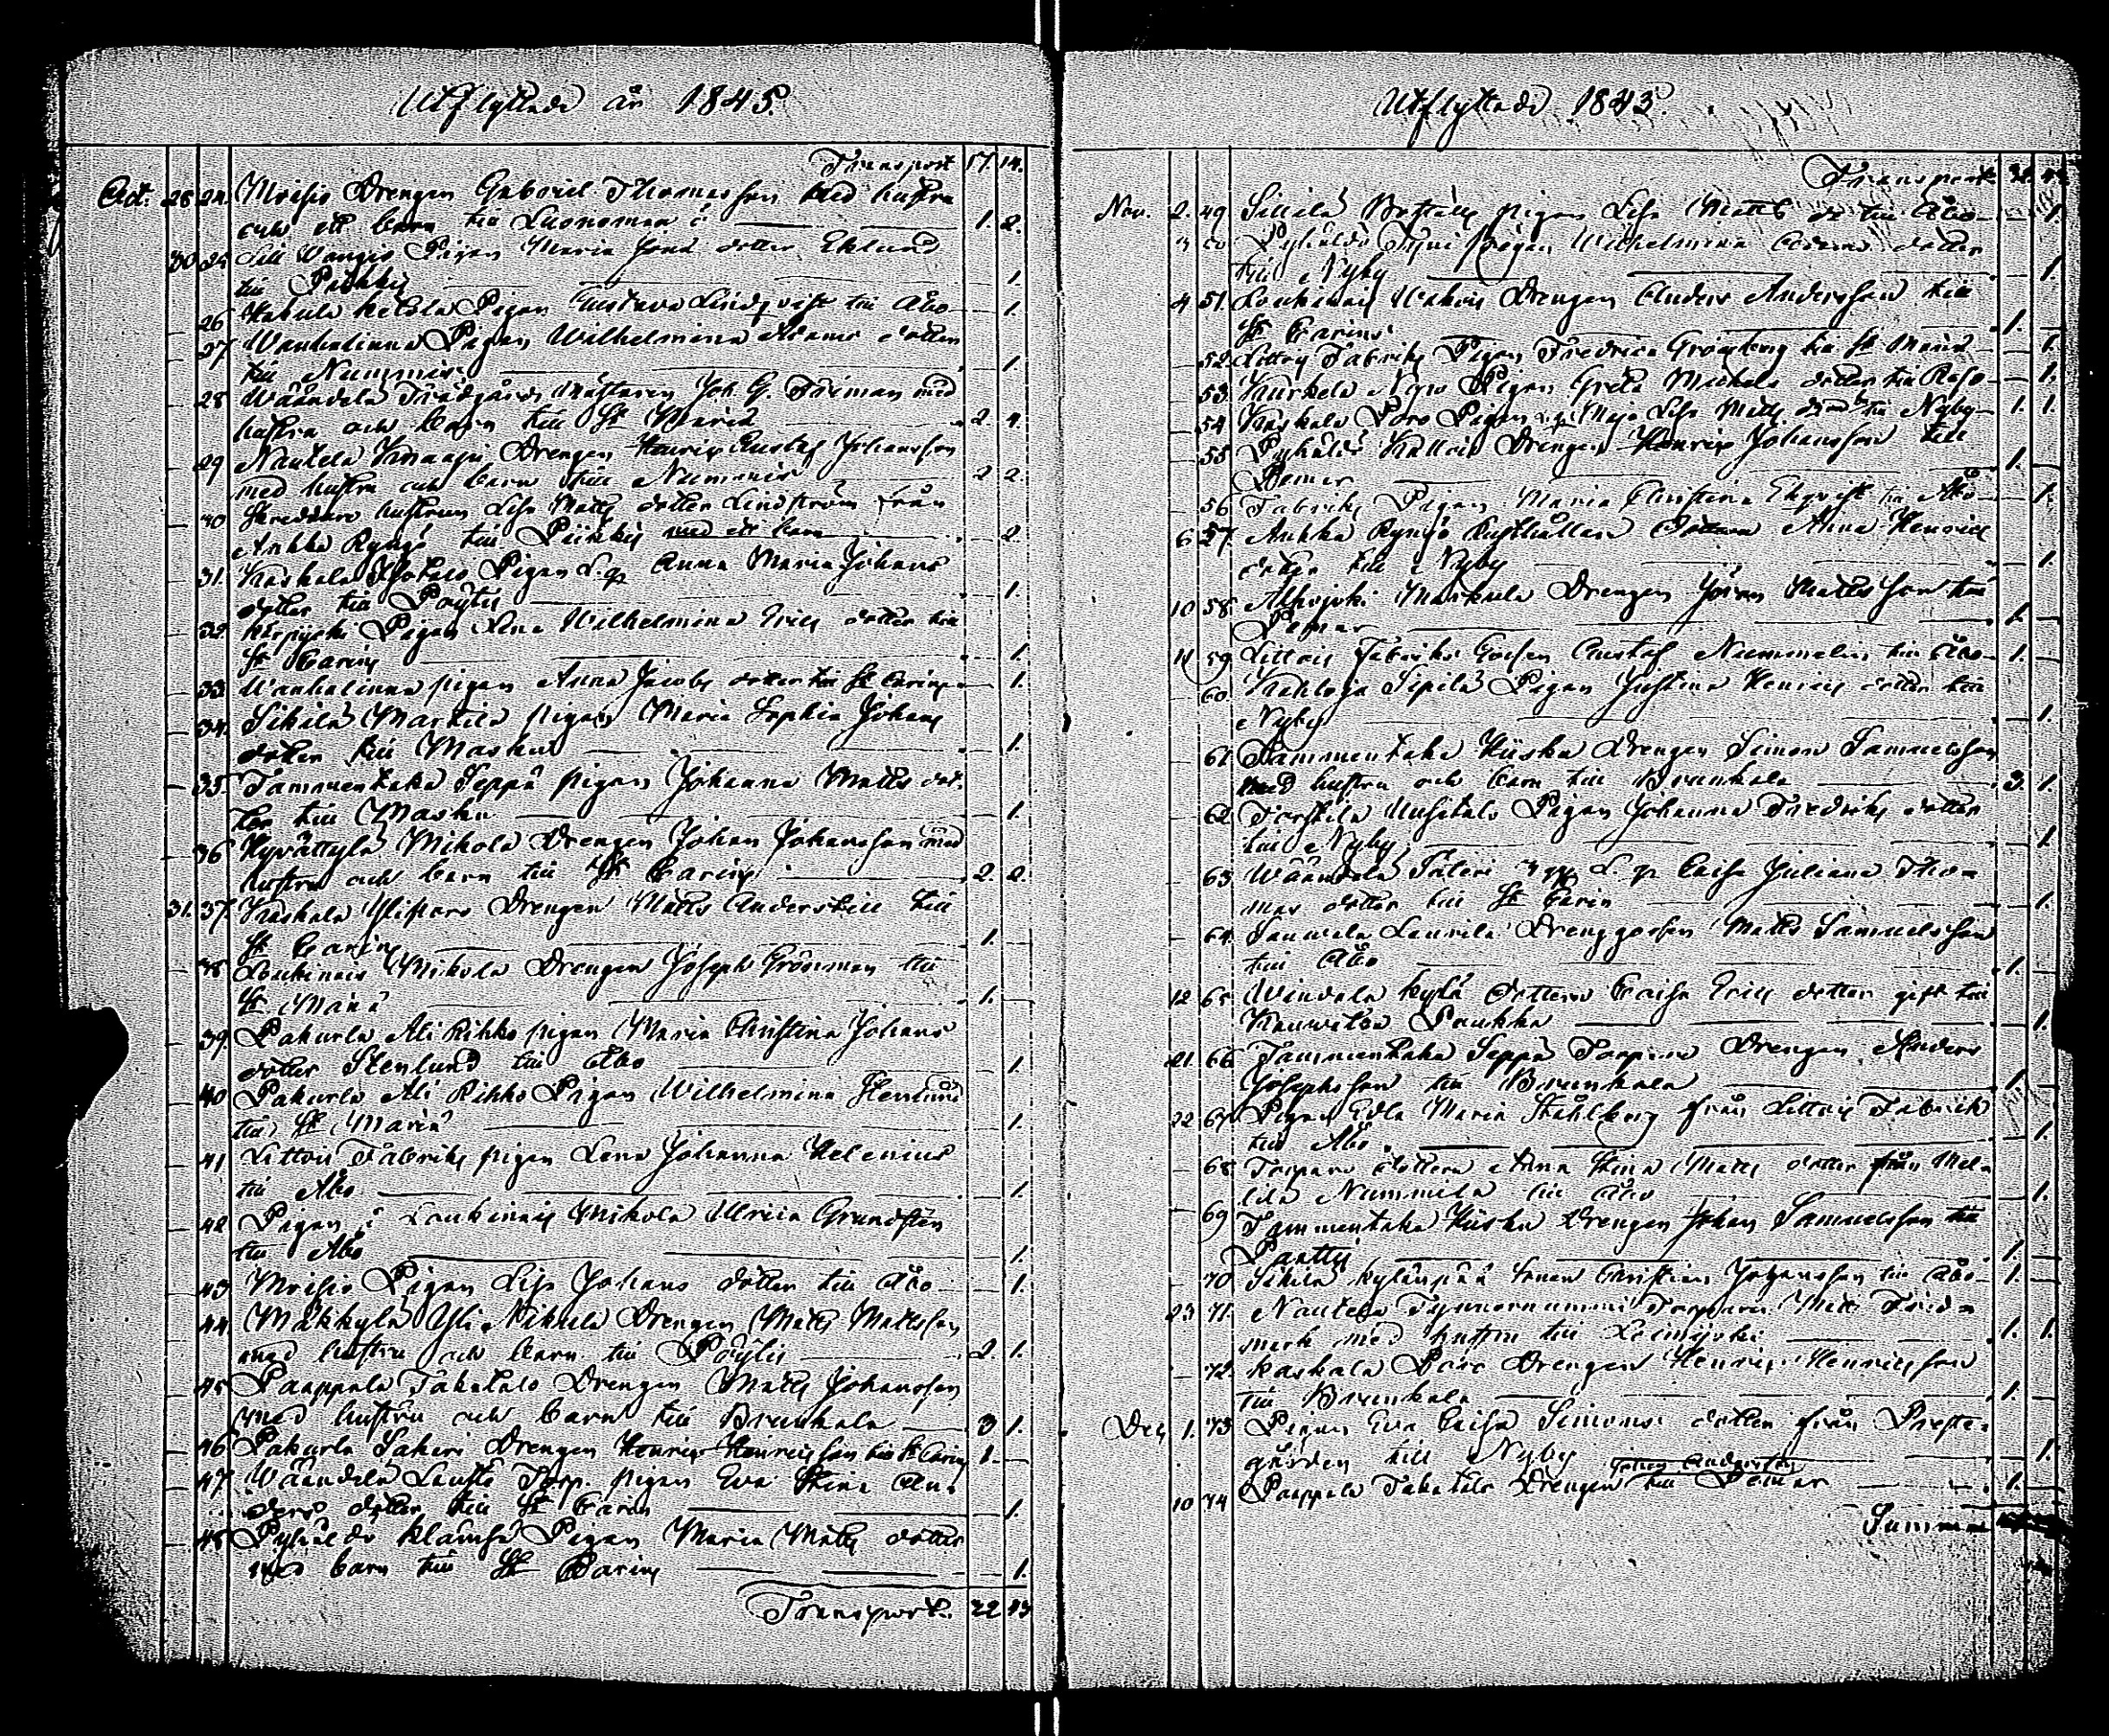 Utflyttade år 1845.
Transport 17. 14.
Oct. 28 24. Moisio Drengen Gabriel Thomasson med hustru
och ett barn till Luonomaa 1. 2.
30 25 Lill Wangio Pigan Maria Joh. dotter Eklund
till Pikkis 1.
26 Pigan Gustava Lindqvist till Åbo 1.
27 Wanhalinna Pigan Wilhelmina Adams dotter
till Nummis 1.
28 Wäändelä Trädgårds Mästaren Joh. G. Friman med
hustru och barn till St Marie 2 4.
29 Nautela Knaapi Drengen Gustaf Johansson
med hustru och barn till Nummis 2 2.
30 Skreddare hustrun Lisa Matts dotter Lindström från
Ankka Ryngö till Piikkis med ett barn 2.
31. Kaskala Pigan L. q. Anna Maria Johans
dotter till Pöytis 1.
32. Pigan Lena Wilhelmina Erics dotter till
St Carins 1.
33 Wanhalinna pigan Anna Jacobs dotter till St Carins 1.
34. Sikilä Markula pigan Maria Sophia Johans
dotter till Masku 1.
35. Tammentaka Seppä pigan Johanna Matts dot-
ter till Masku 1.
36 Hyvättylä Mikola Drengen Johan Johansson med
hustru och barn till St Carins 2. 2.
31. 37. Kaskala Drengen Matts Andersson till
St Carins 1.
38 Loukinais Mikola Drengen Joseph Grönman till
St Mariä 1.
39. Pakurla Ali Rihko pigan Maria Christina Johans
dotter Stenlund till Åbo 1.
40 Pakurla Ali Rihko Pigan Wilhelmina Stenlund
till St Mariä 1.
41 Littois Fabriks pigan Lena Johanna Helenius
till Åbo 1.
42 Pigan i Loukinais Mikola Ulrica Grundstén
till Åbo 1.
43 Moisio Pigan Lisa Johans dotter till Åbo 1.
44. Mäkkylä Yli Nikula Drengen Matts Mattsson
med hustru och barn till Pöytis 2 1.
45 Paappala Takatalo Drengen Matts Johansson
med hustru och barn till Brunkala 3 1.
46 Pakurla Sakari Drengen Henric Henricsson till St Carins 1
47 Wäändelä Torp. pigan Eva Stina An-
ders dotter till St Carins 1.
48 Pyhäldö Klämsä Pigan Maria Matts dotter
med barn till St Carins 1.
Transport.
Utflyttade 1843.
Transport
Nov. 2. 49 Pigan Lisa Matts dr till Åbo 1.
3 50 Pyhäldö Pigan Wilhelmina Adams dotter
till Nyby 1.
4 51. Loukinais Drengen Anders Andersson till
St Carins 1.
52. Littois Fabriks Pigan Fredrica Grönberg till St Mariä 1.
53. Kurkela Pigan Greta Michels dotter till Reso 1.
54 Kaskala Pigan Maja Lisa Matts till Nyby 1. 1.
55 Pyhäldö Drengen Henric Johansson till
Pemar 1.
56 Fabriks Pigan Maria Christina Ekqvist till Åbo 1.
6 57. Ankka Ryngö Rusthållare Dottern Anna Henrics
dotter till Nyby 1.
10 58 Markula Drengen Jöran Mattsson till
Pemar 1.
11 59. Littois Fabriks Gossen Gustaf Nummelin till Åbo 1.
60. Sipilä Pigan Justina Henrics dotter till
Nyby 1.
61. Tammentaka Kiiska Drengen Simon Samuelsson
med hustru och barn till Brunkala 3. 1.
62. Torstila Uusitalo Pigan Johanna Fredriks dotter
till Nyby 1.
63 Wäändelä L. q. Caisa Juliana Tho-
mas dotter till St Carin 1.
64. Tauwela Laurila Drenggossen Matts Samuelsson
till Åbo 1.
12 65 Windala kylä Dottern Caisa Erics dotter gift till
Paukka 1.
21. 66 Tammentaka Seppä Torpare Drengen Anders
Josephsson till Brunkala 1.
22 67 Pigan Edla Maria Ståhlberg från Littois Fabrik
till Åbo 1.
68 Torpare dottern Anna Stina Matts dotter från Mel-
lila Nummila till Åbo 1.
69 Tammentaka Kiiska Drengen Johan Samuelsson till
Paattis 1.
70 Sikilä kylänpää Sonen Christian Johansson till Åbo 1.
23 71. Nautela Torparen Matts Frid-
merk med hustru till Loimijoki 1. 1.
72. Kaskala Drengen Henric Henricsson
till Brunkala 1.
Dec 1. 73 Pigan Eva Caisa Simons dotter från Preste-
gården till Nyby 1.
Johan Andersson
10 74 Paappala Takatalo Drengen till Pemar 1.
Summa